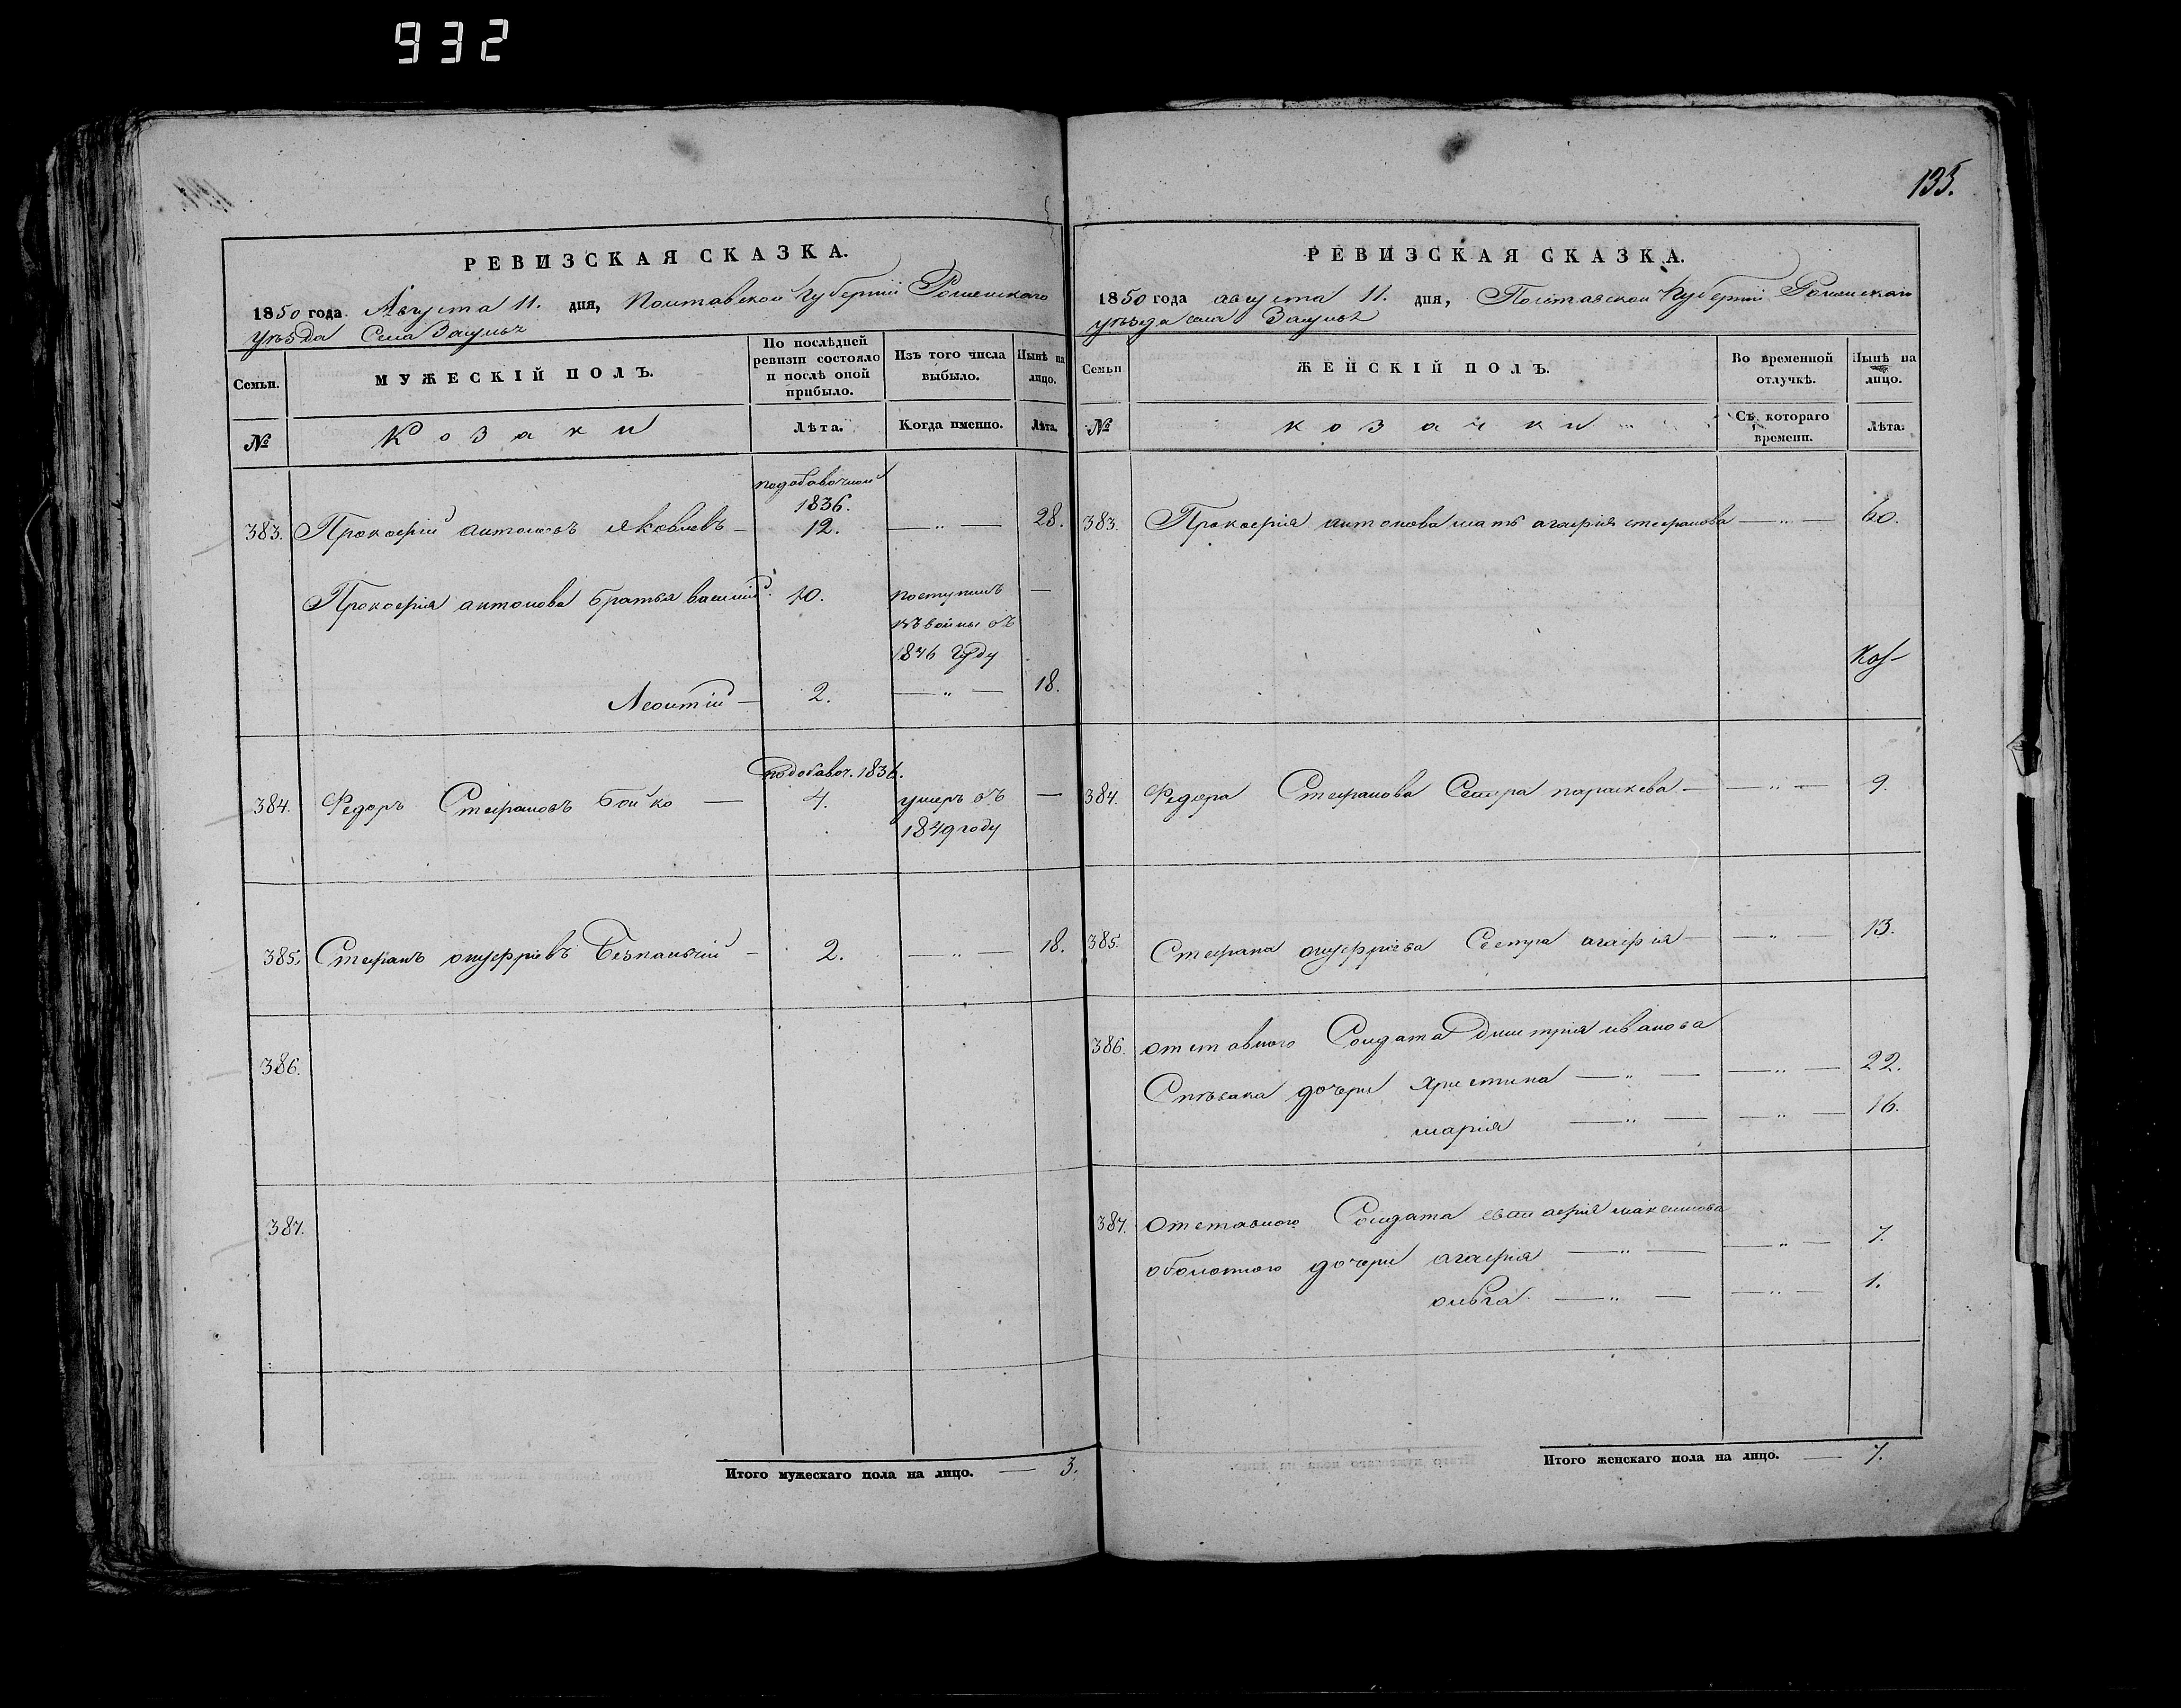 932
135.
РЕВИЗСКАЯ СКАЗКА.
1850 года Августа 11. дня, Полтавской Губерніи Роменскаго
уѣзда Села
Семьи.
МУЖЕСКІЙ ПОЛЪ.
По послѣдней ревизіи состояло и послѣ оной прибыло.
Изъ того числа выбыло.
Нынѣ на лицо.
№
Козаки
Лѣта.
Когда именно.
Лѣта.
подобавочной
1836.
383. Прокофій Антоновъ Яковлевъ — 12. — „ — 28.
Прокофія антонова братья василій 10. поступилъ —
1846 году
Леонтій — 2. — „ — 18.
подобавоч. 1836.
384. Федоръ Стефановъ Бойко — 4. умеръ въ —
1849 году
385. Стефанъ онуфріевъ — 2. — „ — 18.
386.
387.
Итого мужескаго пола на лицо. — 3.
РЕВИЗСКАЯ СКАЗКА.
1850 года августа 11. дня, Полтавской Губерніи Роменскаго
уѣзда села
Семьи
ЖЕНСКІЙ ПОЛЪ.
Во временной отлучкѣ.
Нынѣ на лицо.
№
козачки
Съ котораго времени.
Лѣта.
383. Прокофія антонова мать агафія стефанова — „ — 60.
384. Федора Стефанова Сестра параскева — — „ — 9.
385. Стефана онуфріева Сестра агафія — — „ — 13.
386. отставного Солдата Дмитрія иванова
дочери христина — „ — — „ — 22.
марія — „ — — „ — 16.
387. отставного Солдата максимова
дочери агафія — „ — — „ — 7.
ольга — „ — — „ — 1.
Итого женскаго пола на лицо. — 7.